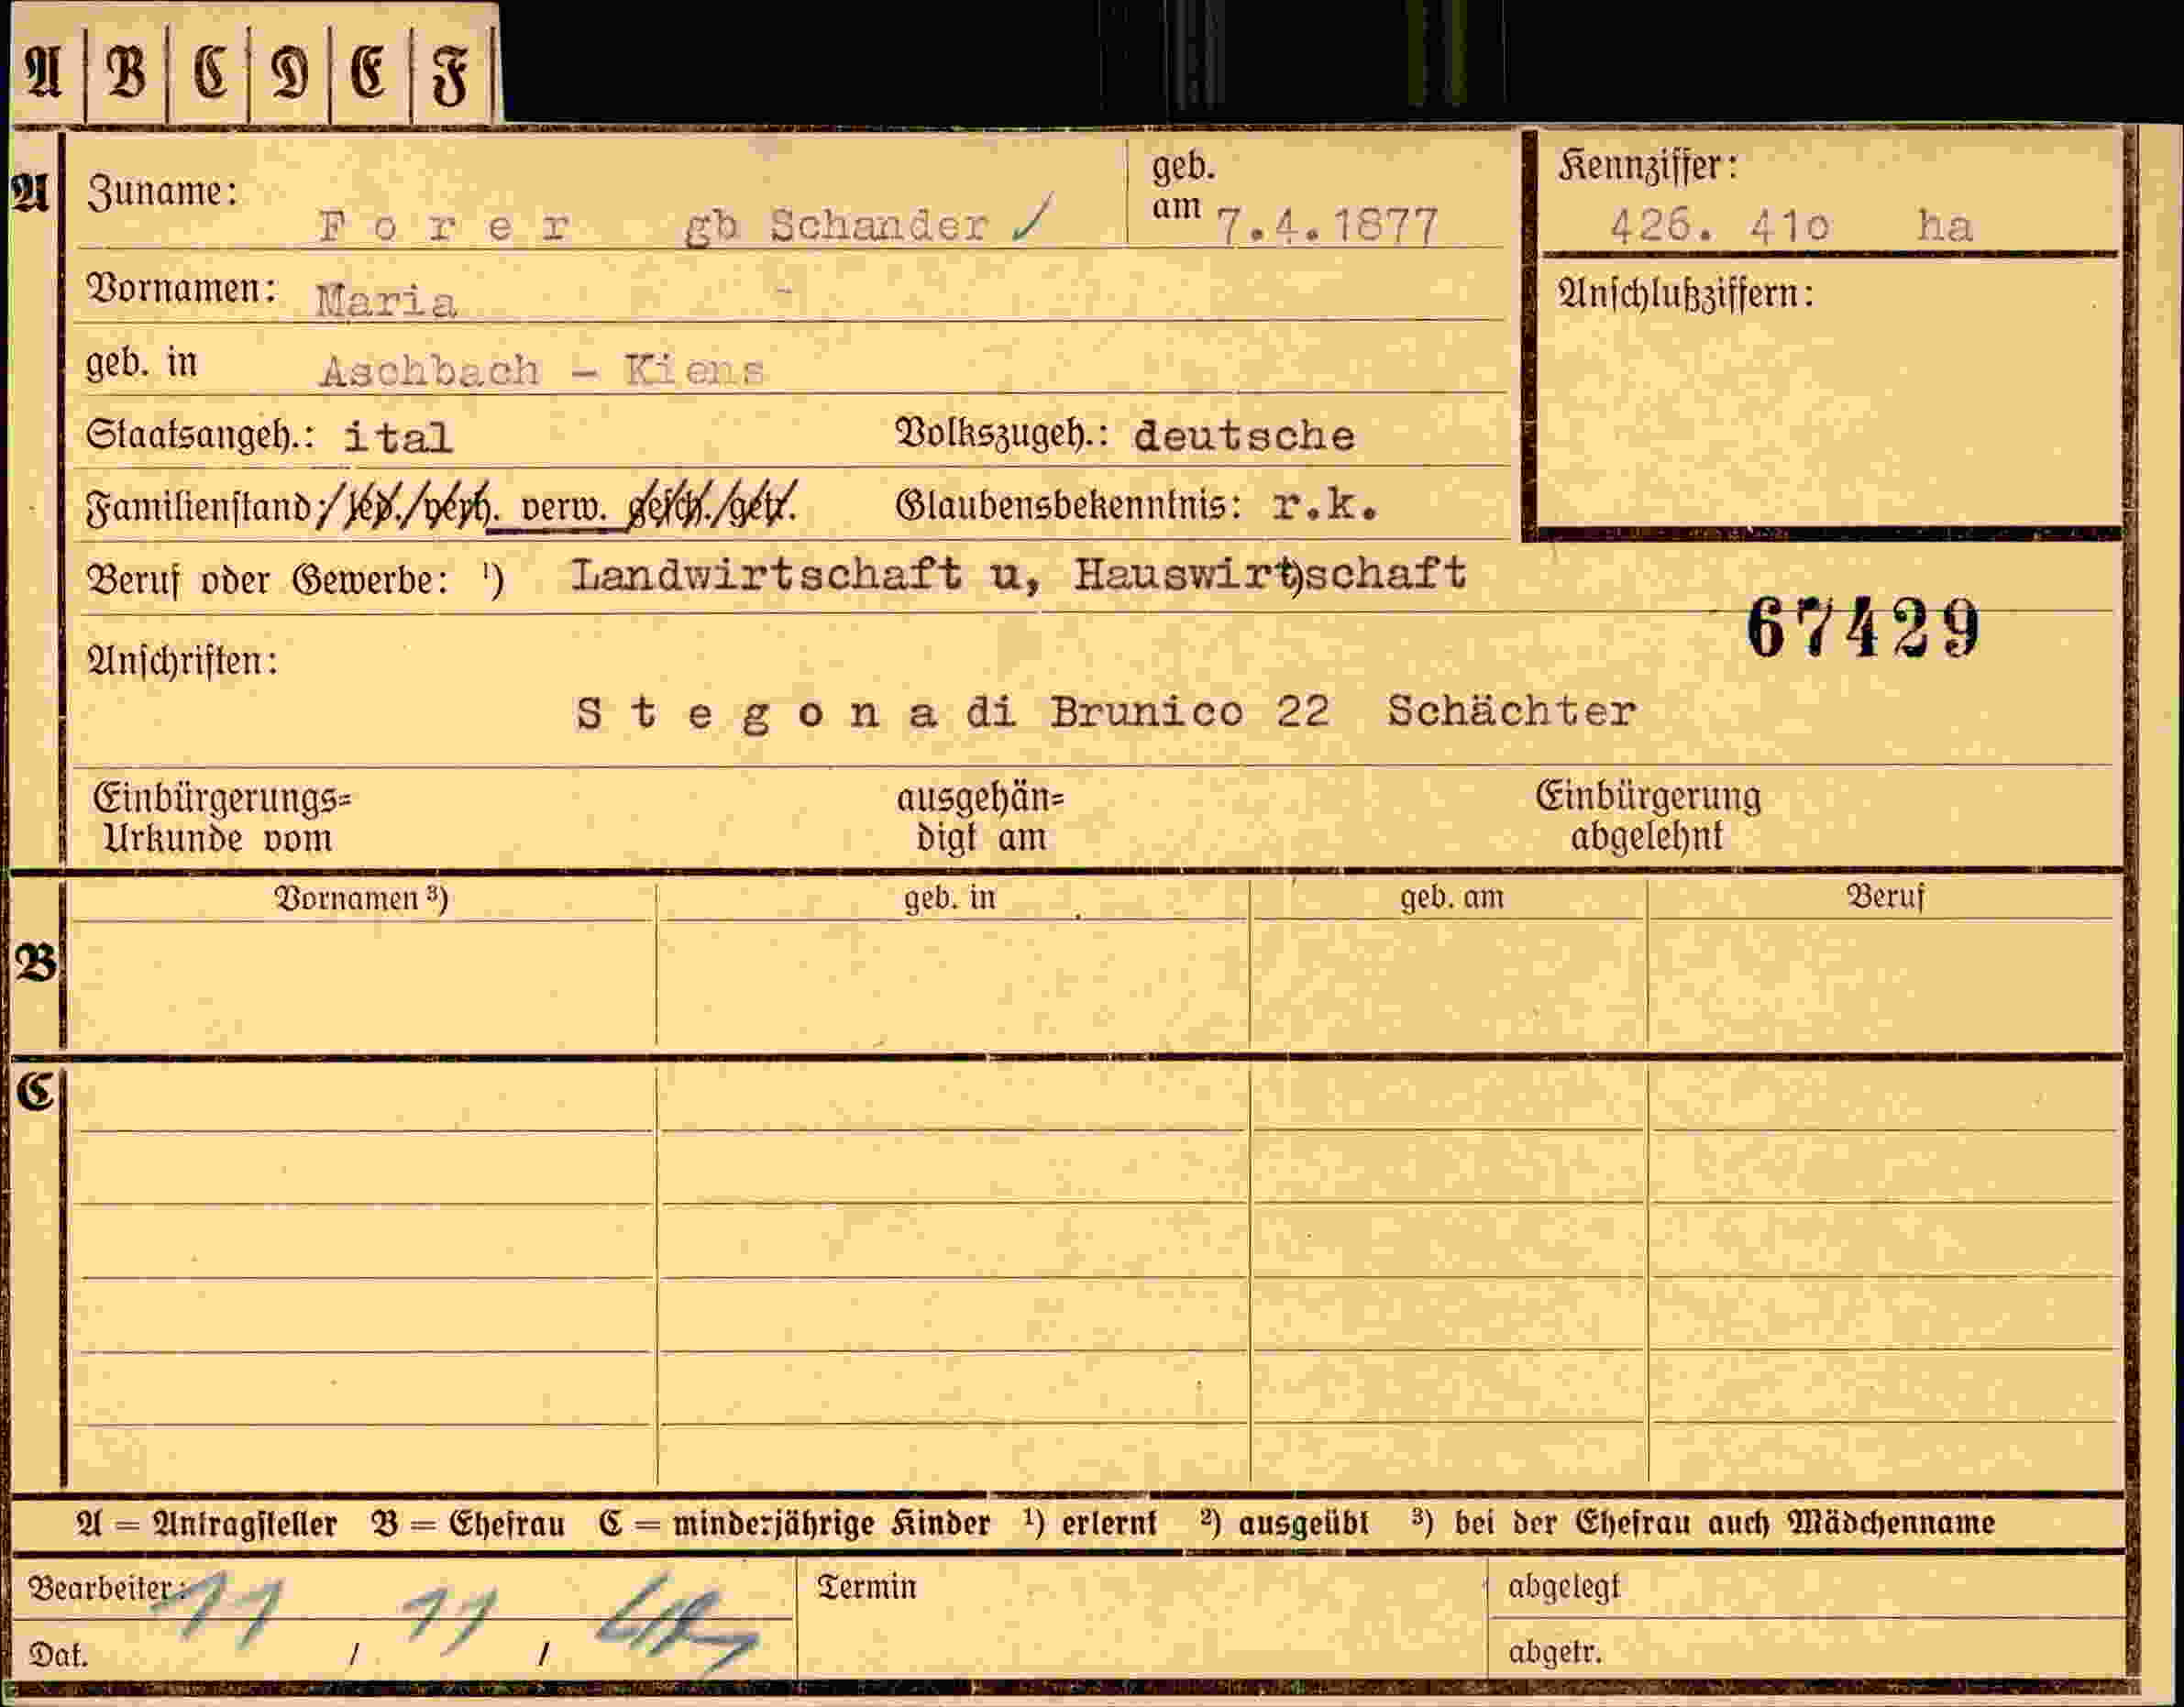 A B C D E F
A Zuname: Forer gb Schander ✓ geb. am 7.4.1877 Kennziffer: 426. 41o ha
Vornamen: Maria Anschlußziffern:
geb. in Aschbach - Kiens
Staatsangeh.: ital Volkszugeh.: deutsche
Familienstand: led./verh. verw. gesch./getr. Glaubensbekenntnis: r.k.
Beruf oder Gewerbe: ¹) Landwirtschaft u, Hauswirtschaft
67429
Anschriften:
S t e g o n a di Brunico 22 Schächter
Einbürgerungs= ausgehän= Einbürgerung
Urkunde vom digt am abgelehnt
Vornamen ³) geb. in geb. am Beruf
B
C
A = Antragsteller B = Ehefrau C = minderjährige Kinder ¹) erlernt ²) ausgeübt ³) bei der Ehefrau auch Mädchenname
Bearbeiter: 11 11 Termin abgelegt
Dat. / / abgetr.